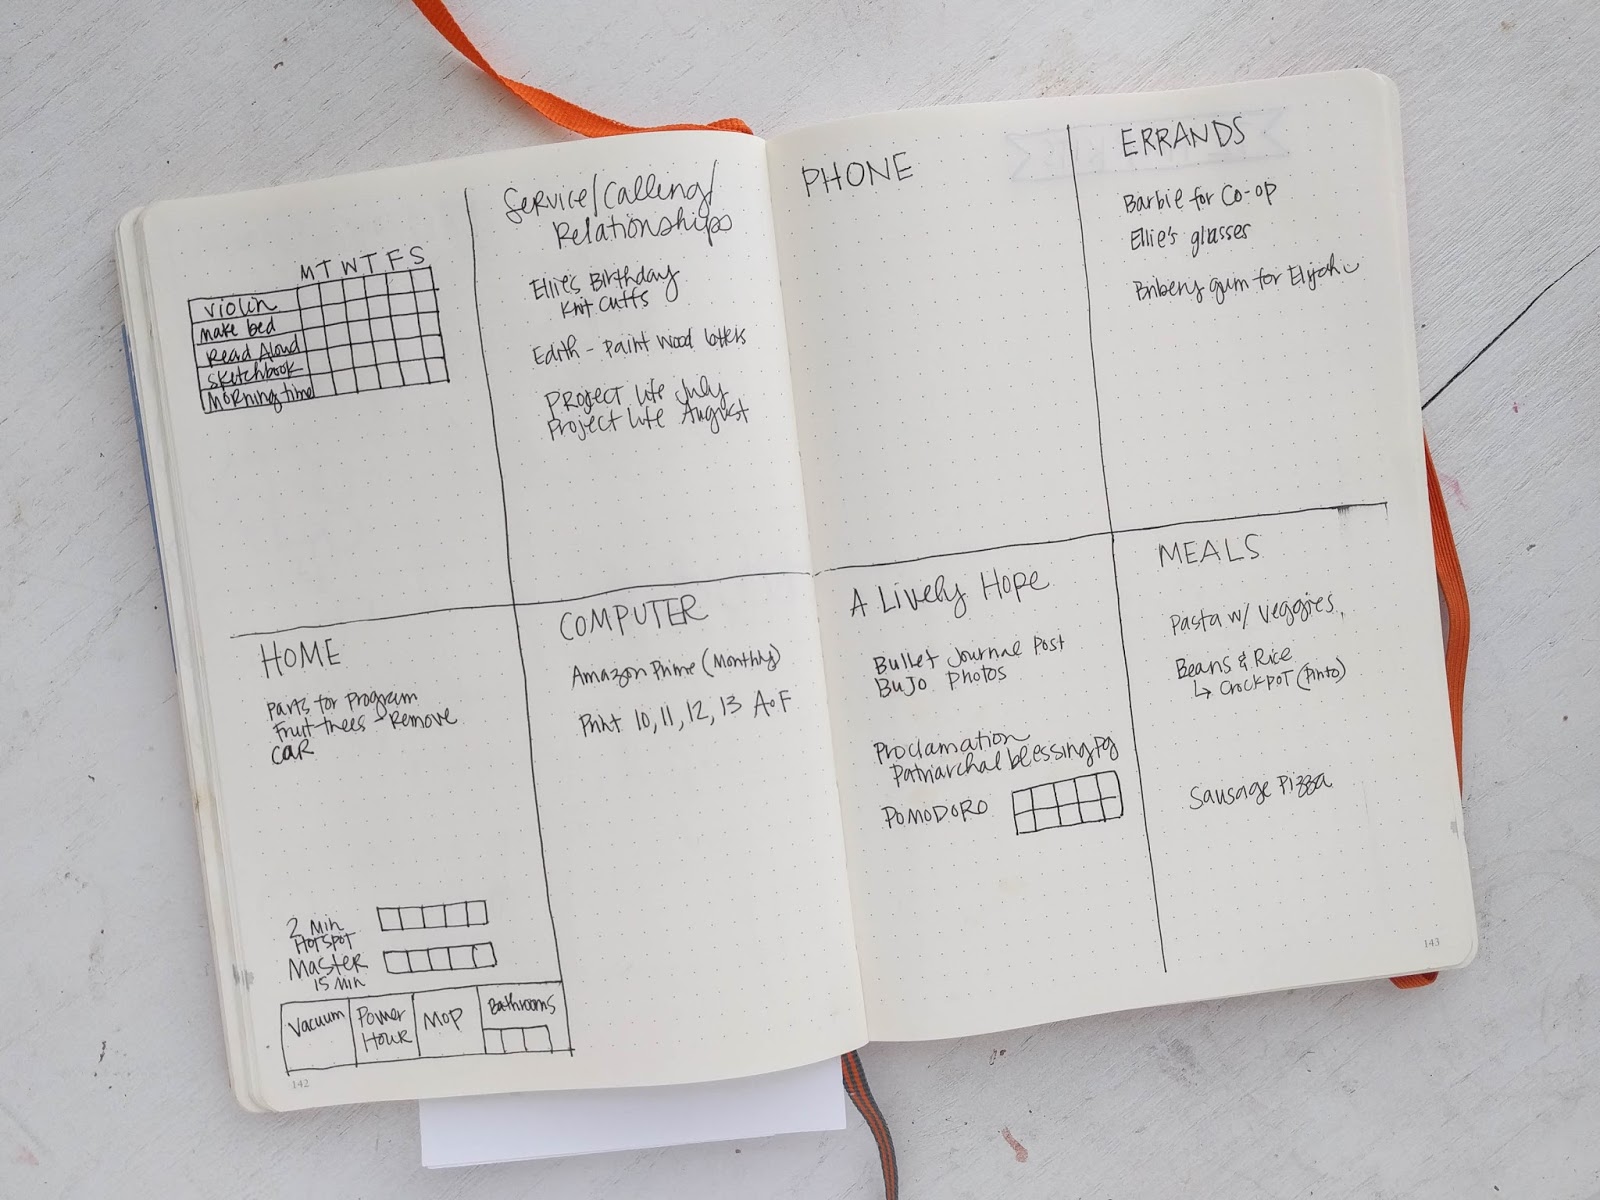 M T W T F S
violin
make bed
Read Aloud
Sketchbook
Morning time
Service/Calling/
Relationships
Ellie's Birthday
Knit Cuffs
Edith - Paint Wood letters
Project Life July
Project Life August
HOME
Parts for Program
Fruit trees - Remove
CAR
2 Min
Hotspot
Master
15 Min
Vacuum
Power
Hour
Mop
Bathrooms
142
COMPUTER
Amazon Prime (Monthly)
Print 10, 11, 12, 13 AoF
PHONE
ERRANDS
Barbie for Co-op
Ellie's glasses
Bribery gum for Elijah
A Lively Hope
Bullet Journal Post
BuJo Photos
Proclamation
Patriarchal blessing pg
POMODORO
MEALS
Pasta w/ Veggies
Beans & Rice
↳ CROCKPOT (Pinto)
Sausage Pizza
143